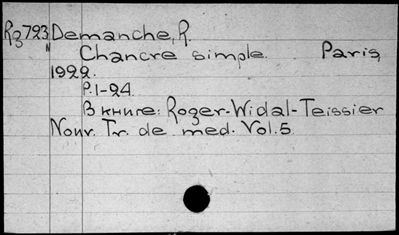 Rz793 Demanche, R.
N Chancre simple. Paris,
1922.
P.1-24.
В книге: Roger-Widal-Teissier
Nouv. Tr. de med. Vol.5